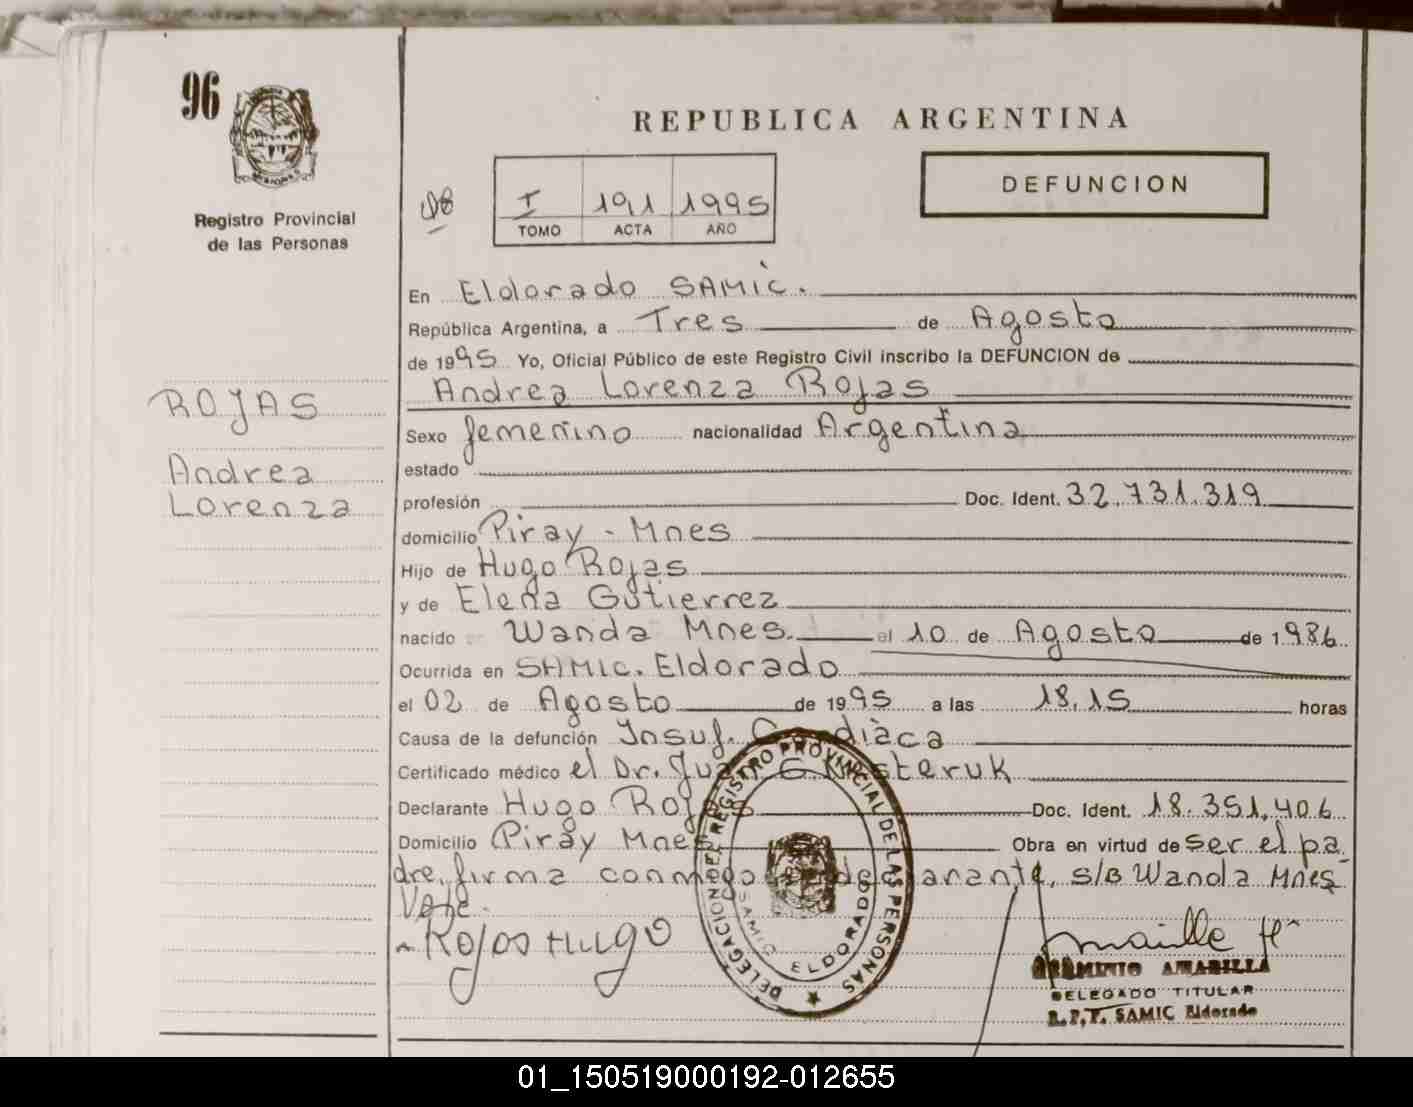 96
Registro Provincial
de las Personas
REPUBLICA ARGENTINA
DEFUNCION
I 191 1995
TOMO ACTA AÑO
En Eldorado SAMIC.
República Argentina, a Tres de Agosto
de 1995 Yo, Oficial Público de este Registro Civil inscribo la DEFUNCION de
Andrea Lorenza Rojas
ROJAS
Andrea
Lorenza
Sexo femenino nacionalidad Argentina
estado
profesión Doc. Ident. 32.731.319
domicilio Piray - Mnes
Hijo de Hugo Rojas
y de Elena Gutierrez
nacido Wanda Mnes. el 10 de Agosto de 1.986
Ocurrida en SAMIC. Eldorado
el 02 de Agosto de 1995 a las 18,15 horas
Causa de la defunción Insuf. Cardiàca
Certificado médico el Dr. Juan G.
Declarante Hugo Rojas Doc. Ident. 18.351.406
Domicilio Piray Mnes Obra en virtud de ser el pa
dre, firma conmigo el declarante, s/B Wanda Mnes
Vale.
Rojas Hugo
DELEGACION DEL REGISTRO PROVINCIAL DE LAS PERSONAS
SAMIC ELDORADO
HERMINIO AMARILLA
DELEGADO TITULAR
R.P.P. SAMIC Eldorado
01_150519000192-012655